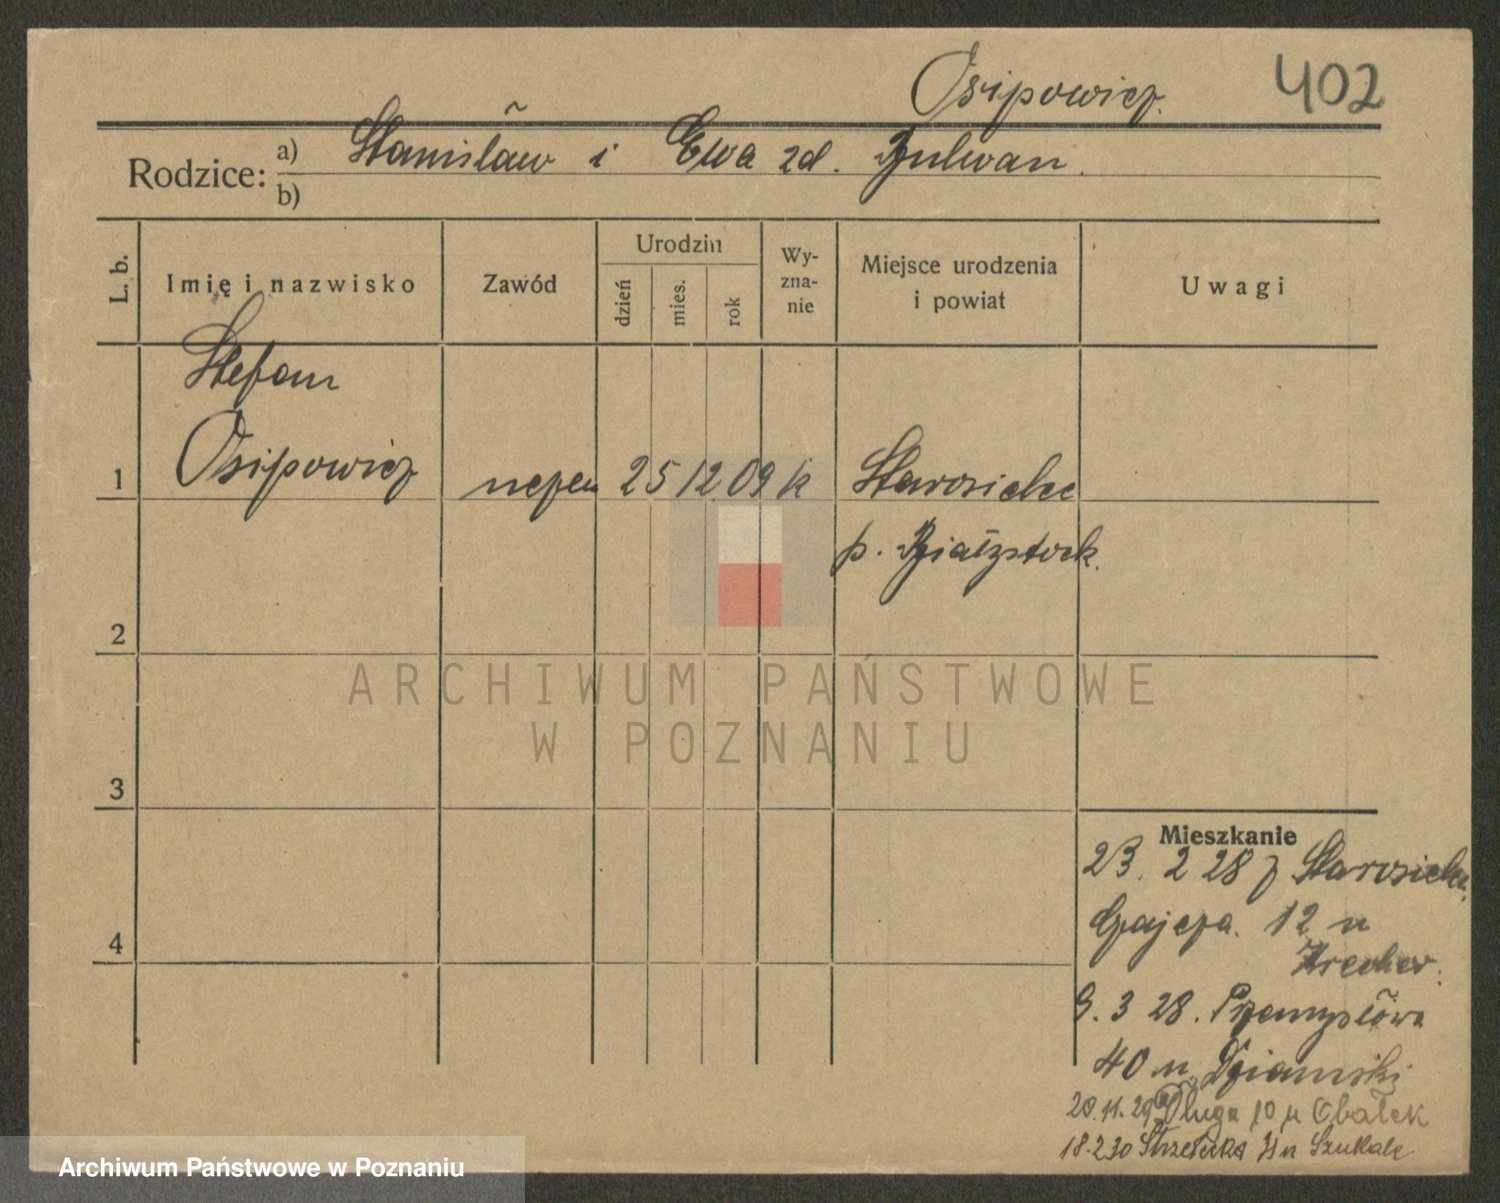 Osipowicz. 402
Rodzice: a) Stanisław i Ewa zd. Bulwan.
b)
L. b. Imię i nazwisko Zawód Urodzin dzień mies. rok Wy-zna-nie Miejsce urodzenia i powiat Uwagi
Stefan
1 Osipowicz uczeń 25 12 09 k Starosielce
p. Białystock.
2
ARCHIWUM PAŃSTWOWE
W POZNANIU
3
Mieszkanie
23. 2 28 z Starosielc.
Gajcza. 12 u
4
9. 3 28. Przemysłowa
40 u Dziamski
20.11.29 Długa 10 u Obałek
18.2 30 Strzelecka u Szukale
Archiwum Państwowe w Poznaniu